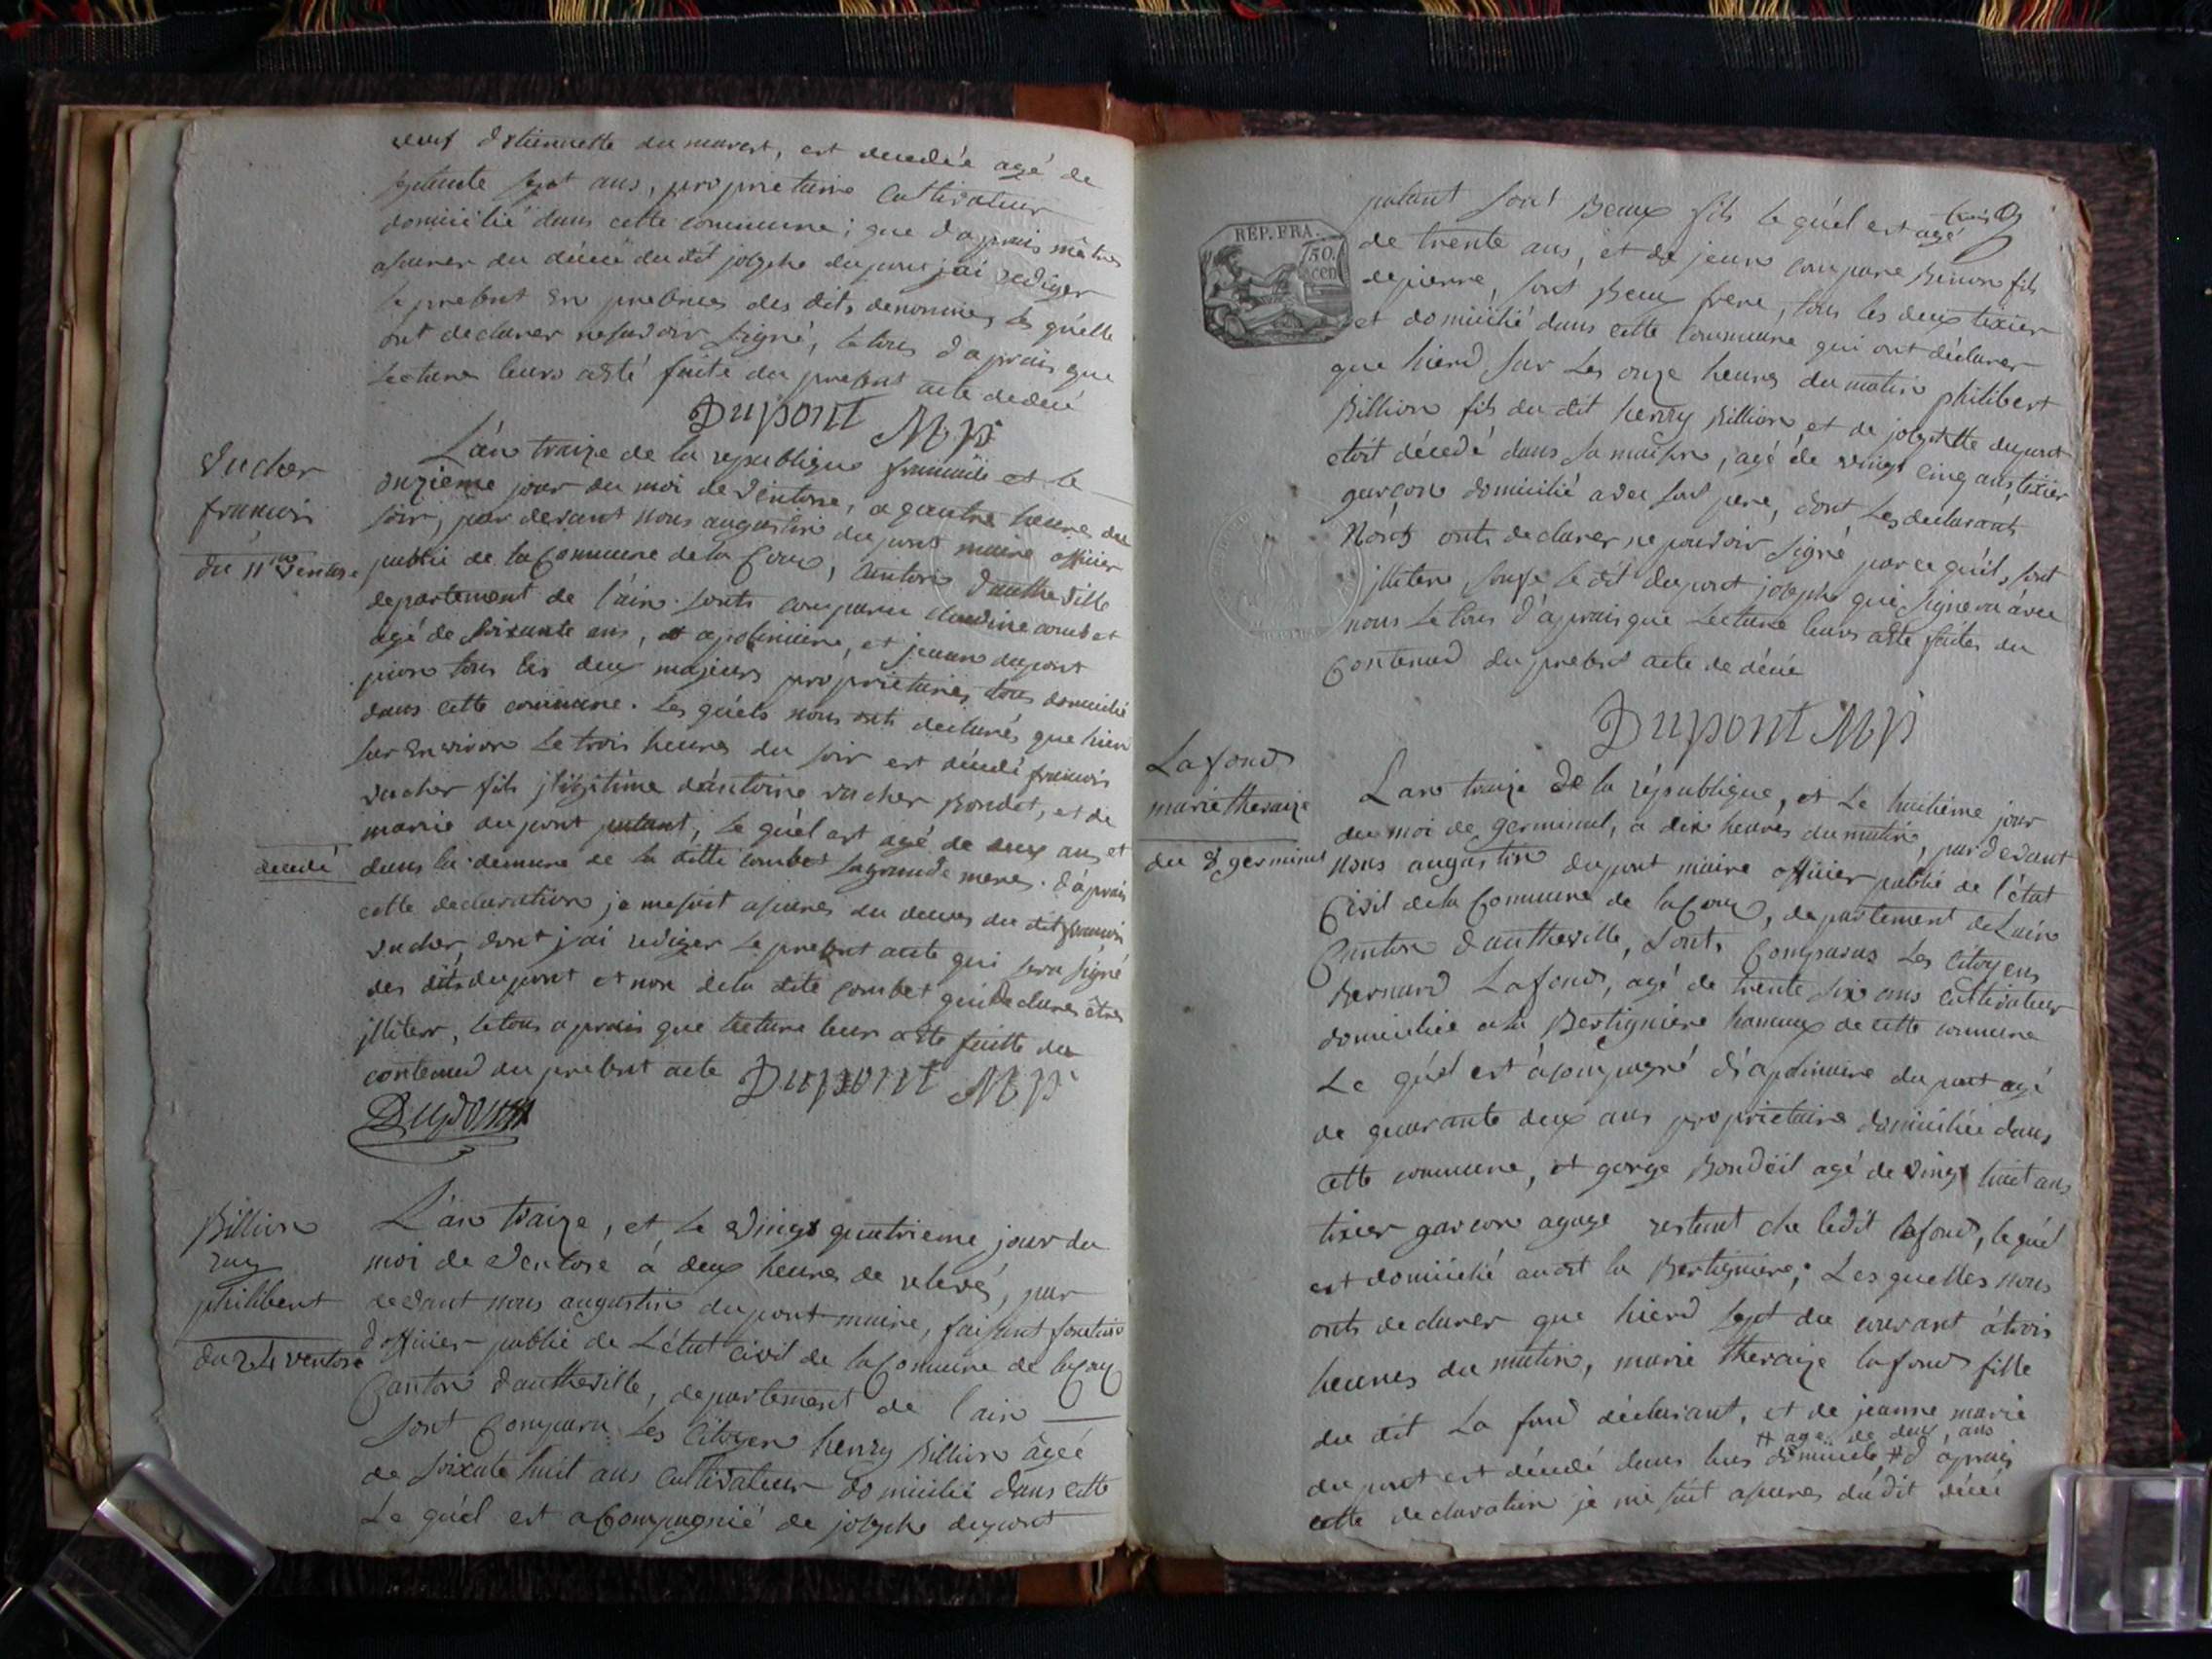 veuf d'etiennette du marest, est decedé agé de
septante sept ans, proprietaire cultivateur
domicilié dans cette commune; que d'aprais mêtres
asurer du décé du dit joseph dupont j'ai rediger
le present en presence des dits denommés, les quelle
ont declarer ne savoir signé, le tous d'aprais que
lecture leurs a été faite du present acte de décé
Dupont M p
Vucher
francois
du 11me ventose
L'an traize de la republique francaise et le
onzieme jour du moi de ventose, a quatre heure du
soir, par devant nous augustin dupont maire officier
public de la Commune de la Coux, Canton d'autheville
departement de l'ain sonts comparu claudine combet
agé de soixante ans, et apolinaire, et jean dupont
pion tous les deux majeurs proprietaires, tous domicilié
dans cette commune. Les quels nous onts declarés que hier
sur environ le trois heures du soir est décédé francois
vucher fils jligitime d'antoine vucher Bondet, et de
marie dupont putant, le quel est agé de deux ans et
decedé
dans la demure de la ditte combet sa grande mere. d'aprais
cette declaration je me suit asures du deces du dit francois
vucher, dont j'ai rediger le present acte qui sera signé
des dits dupont et non de la dite combet qui declares être
jlliter, le tous aprais que lecture leur a été faitte du
contenud du present acte Dupont M p
Dupont
Billion
philibert
du 24 ventose
L'an traize, et le vingt quatrieme jour du
moi de ventose à deux heures de relevé, par
devant nous augustin dupont maire, faisant fonction
d'officier public de l'état civil de la Commune de la Coux
Canton d'autheville, departement de l'ain
sont Comparu les Citoyen henry Billion âgéé
de soixante huit ans cultivateur domicilié dans cette
Le quel est acompagnié de joseph dupont
REP. FRA.
50.
cen
putant sont Beaux fils le quel est agé
de trente trois ans, et de jean compare Benon fils
de pierre, sont Beux frere, tous les deux tixier
et domicilié dans cette Commune qui ont déclarer
que hierd sur les onze heures du matin philibert
Billion fils du dit henry Billion et de josephte dupont
etoit décedé dans sa maison, agé de vingt cinq ans, tixier
garcon domicilié avec sont pere, dont les declarants
Nous onts declarer ne pouvoir signé parce qu'ils sont
jlliteres sauf le dit dupont joseph qui signera avec
nous le tous d'aprais que lecture leurs a été faites du
Contenud du present acte de décé
Dupont M p
Lafond
marie theraize
du 8 germinal
L'an traize de la république, et le huitième jour
du moi de germinal, a dix heures du matin, par devant
nous augustin dupont maire officier public de l'état
Civil de la Commune de la Coux, departement de Lain
Canton d'autheville, sonts Comparus les Citoyens
Bernard Lafond, agé de trente six ans cultivateur
domicilié a la Bertigniere hamaux de cette commune
Le quel est acompagné d'apolinaire dupont agé
de quarante deux ans proprietaire domicilié dans
cette commune, et gorge Bondeil agé de vingt huit ans
tixier garcon agage restant che ledit lafond, le quel
est domicilié audit la Bertigniere; Les quelles nous
onts declarer que hierd sept du courant à trois
heures du matin, marie theraize lafond fille
du dit La fond déclarant, et de jeanne marie
# age de deux ans
dupont est décedé dans leurs domicile # d'aprais
cette declaration je me suit asures du dit décé